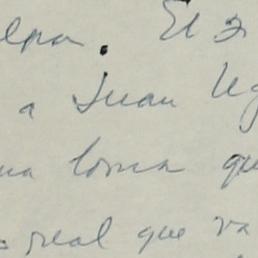 elpa. El 3
a Juan Ug
na loma que
real que va